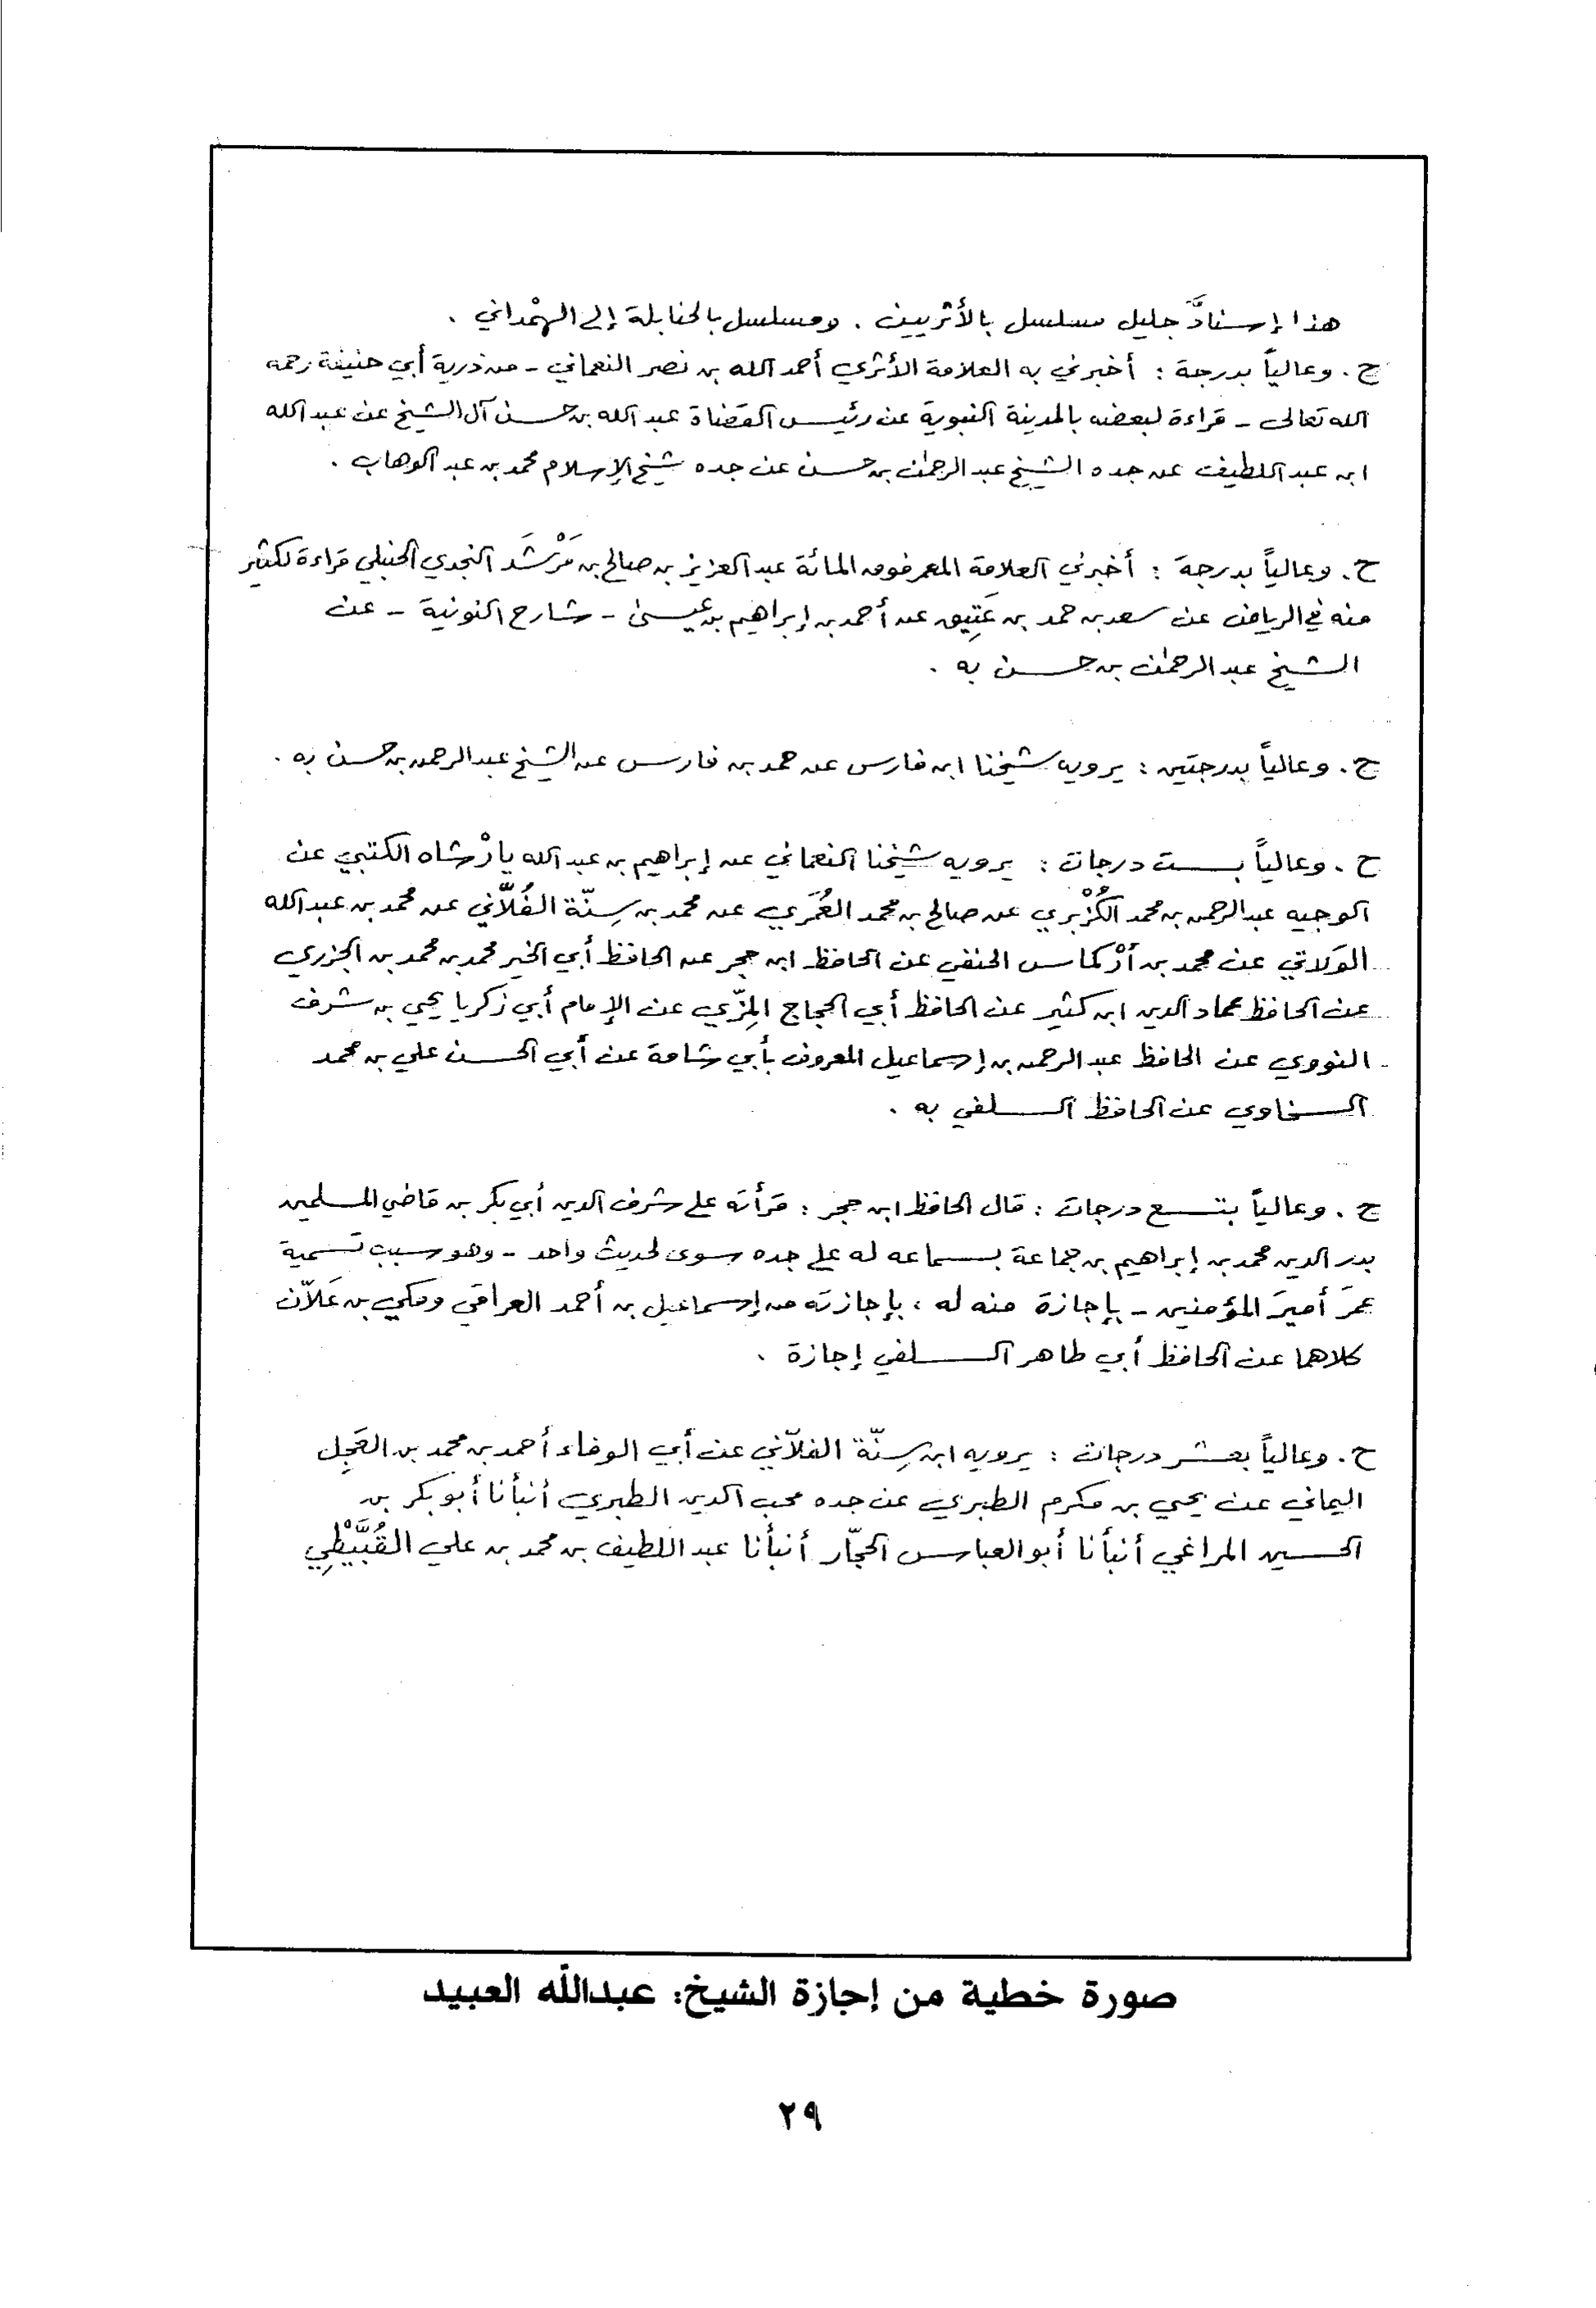 هذا إسنادٌ جليل مسلسل بالأثريين . ومسلسل بالحنابلة إلى الهمْداني .
ح . وعالياً بدرجة : أخبرني به العلامة الأثري أحمد الله بن نصر النعماني - من ذرية أبي حنيفة رحمه
الله تعالى - قراءة لبعضه بالمدينة النبوية عن رئيس القضاة عبد الله بن حسن آل الشيخ عن عبد الله
ابن عبد اللطيف عن جده الشيخ عبد الرحمن بن حسن عن جده شيخ الإسلام محمد بن عبد الوهاب .
ح . وعالياً بدرجة : أخبرني العلامة المعمر فوق المائة عبد العزيز بن صالح بن مَرْشَد النجدي الحنبلي قراءة لكثير
منه في الرياض عن سعد بن حمد بن عَتِيق عن أحمد بن إبراهيم بن عيسى - شارح النونية - عن
الشيخ عبد الرحمن بن حسن به .
ح . وعالياً بدرجتين : يرويه شيخنا ابن فارس عن حمد بن فارس عن الشيخ عبد الرحمن بن حسن به .
ح . وعالياً بست درجات : يرويه شيخنا النعماني عن إبراهيم بن عبد الله يارْشاه الكتبي عن
الوجيه عبد الرحمن بن محمد الكُزْبري عن صالح بن محمد العُمَري عن محمد بن سِنّة الفُلَّاني عن محمد بن عبد الله
الوَلاتي عن محمد بن أرْكماس الحنفي عن الحافظ ابن حجر عن الحافظ أبي الخير محمد بن محمد بن الجزري
عن الحافظ عماد الدين ابن كثير عن الحافظ أبي الحجاج المِزّي عن الإمام أبي زكريا يحيى بن شرف
النووي عن الحافظ عبد الرحمن بن إسماعيل المعروف بأبي شامة عن أبي الحسن علي بن محمد
السخاوي عن الحافظ السلفي به .
ح . وعالياً بتسع درجات : قال الحافظ ابن حجر : قرأته على شرف الدين أبي بكر بن قاضي المسلمين
بدر الدين محمد بن إبراهيم بن جماعة بسماعه له على جده سوى لحديث واحد - وهو سبب تسمية
عمرَ أميرَ المؤمنين - بإجازة منه له ، بإجازته من إسماعيل بن أحمد العراقي ومكي بن عَلّان
كلاهما عن الحافظ أبي طاهر السلفي إجازة .
ح . وعالياً بعشر درجات : يرويه ابن سِنّة الفلّاني عن أبي الوفاء أحمد بن محمد بن العَجِل
اليماني عن يحيى بن مكرم الطبري عن جده محب الدين الطبري أنبأنا أبو بكر بن
الحسين المراغي أنبأنا أبو العباس الحجّار أنبأنا عبد اللطيف بن محمد بن علي القُبَّيْطِي
صورة خطية من إجازة الشيخ: عبدالله العبيد
٢٩